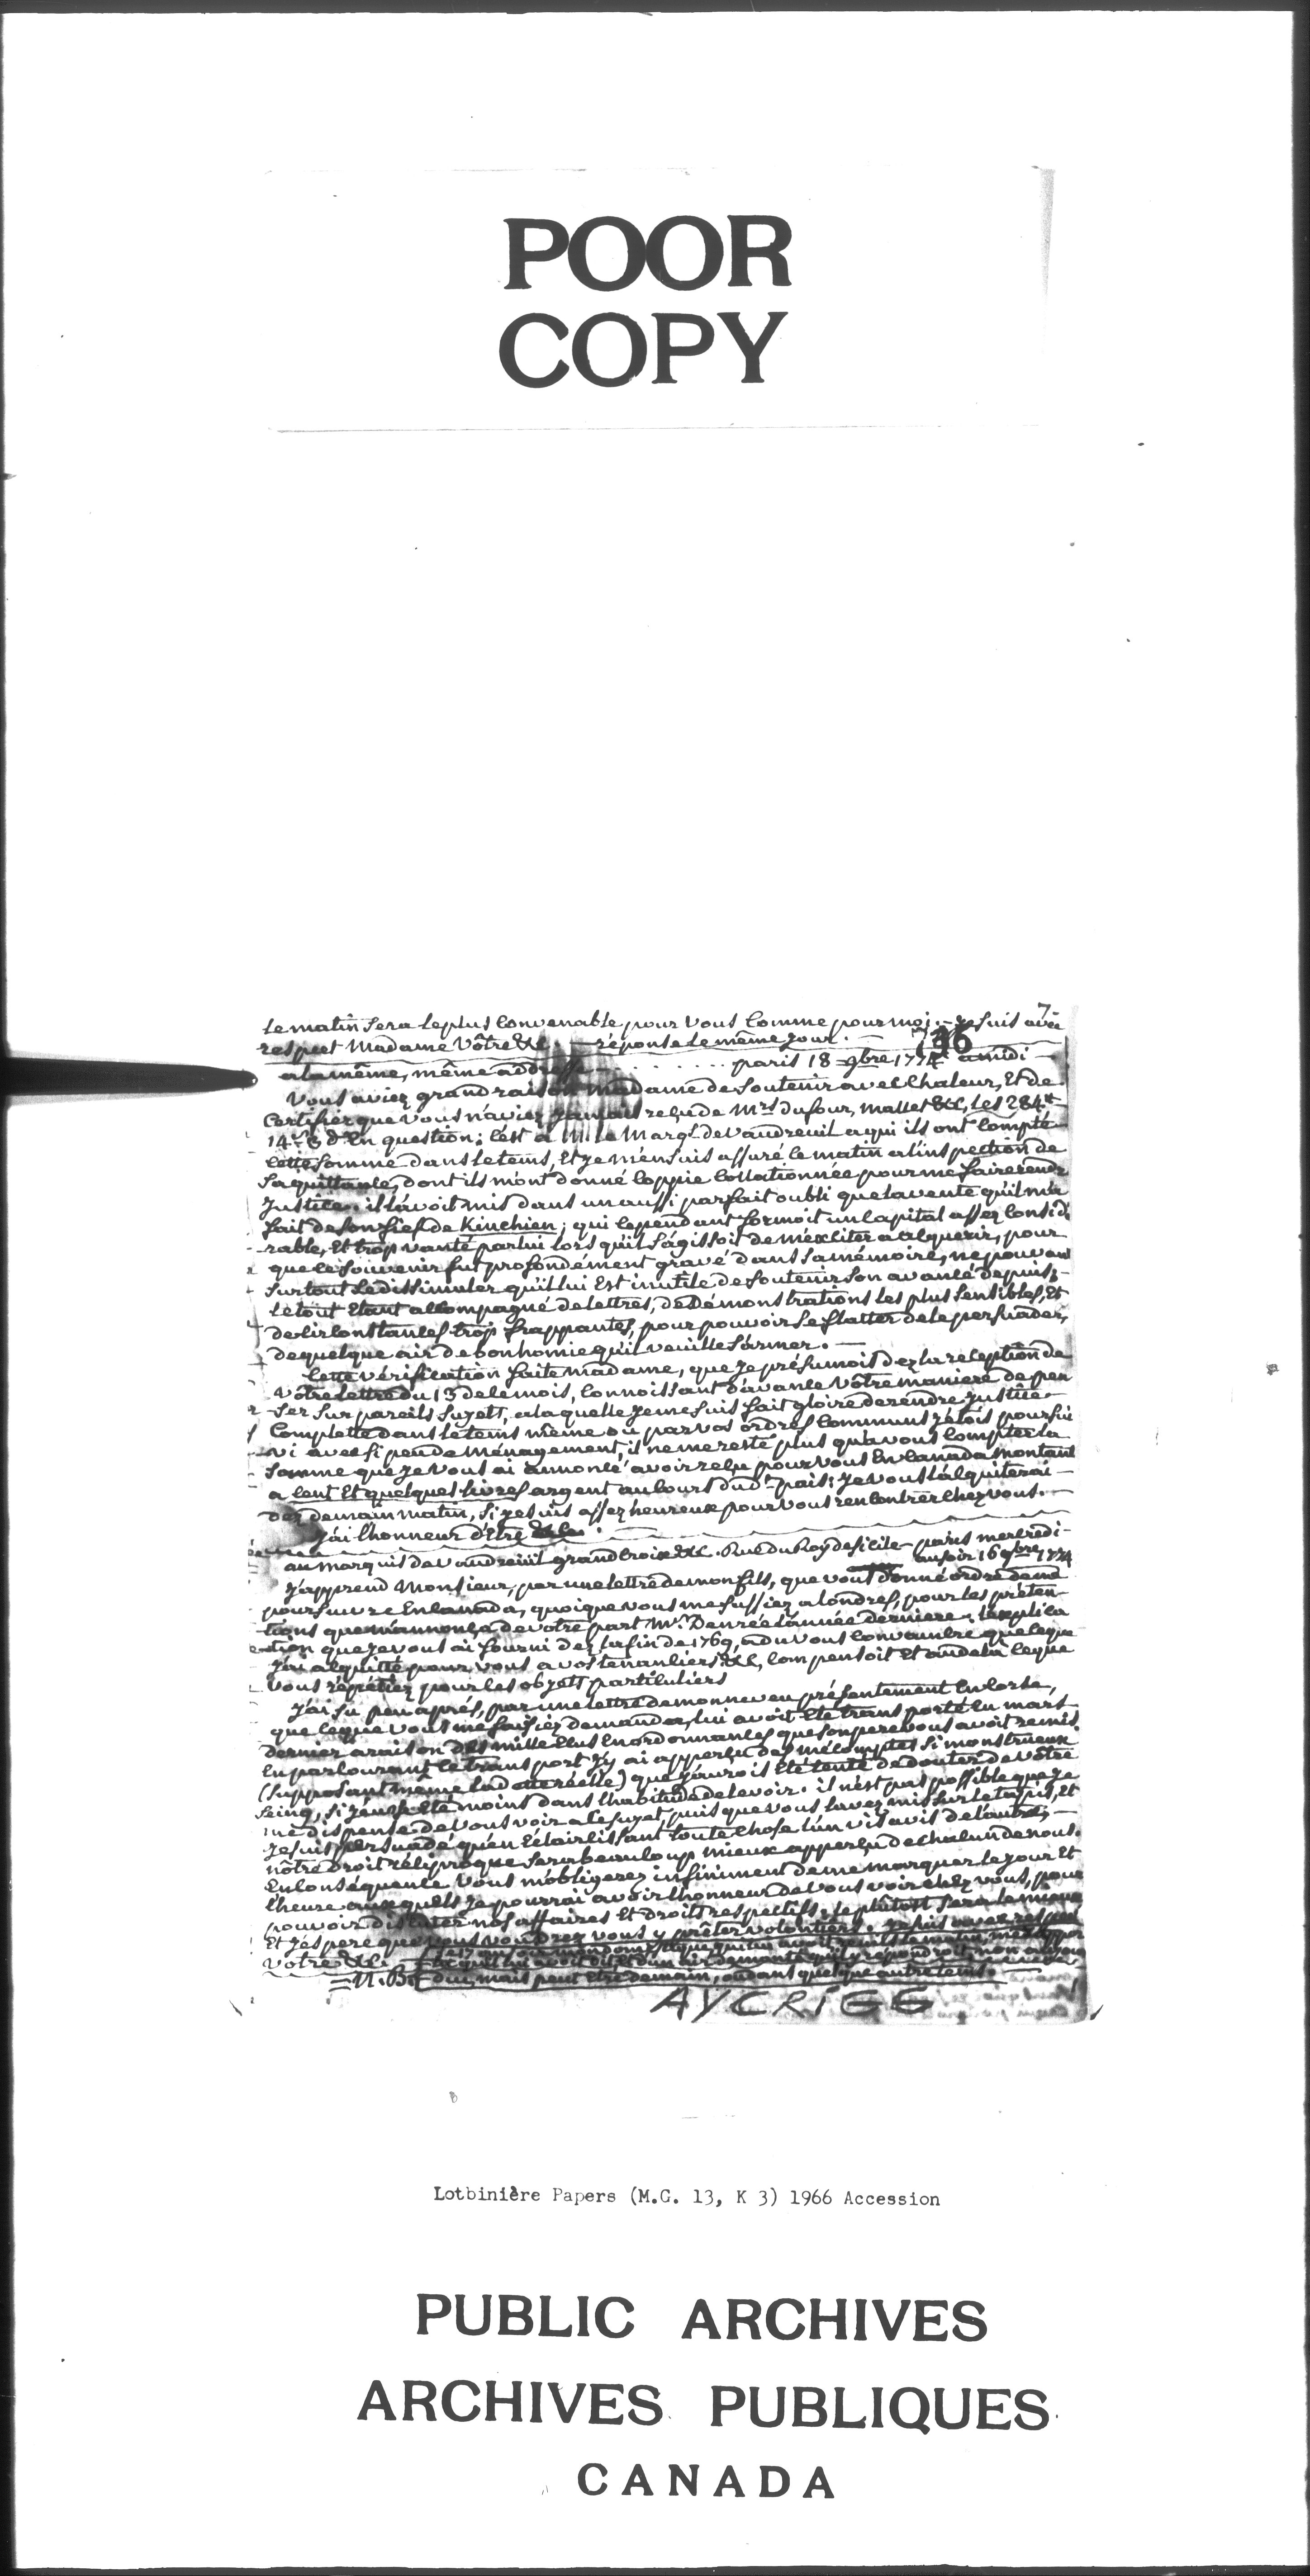 POOR
COPY
7
le matin sera le plus convenable pour vous comme pour moi. je suis avec
736
respect Madame Vôtre &c. — réponse le même jour. —
a la même, même addresse . . . . . . paris 18 9bre 1774 a midi —
Vous aviez grand raison Madame de soutenir avec chaleur, Et de
Certifier que vous n'aviez jamais reçu de Mrs dufour, mallet &c, les 284tt
14 s d. En question; c'est a M. le Marqs. de Vaudreuil a qui ils ont compté
cette somme dans le tems, Et je m'en suis assuré le matin a l'inspection de
sa quittance, dont ils m'ont donné coppie collationnée pour me faire rendre
Justice. il l'avoit mis dans un aussi parfait oubli que la vente qu'il m'a
fait de son fief de Kinchien; qui cependant formoit un capital assez considé
rable, Et trop vanté par lui lors qu'il s'agissoit de m'exciter a l'acquerir, pour
que le souvenir fut profondément gravé dans sa mémoire, ne pouvant
surtout se dissimuler qu'il lui Est inutile de soutenir son avancé depuis;
le tout Etant accompagné de lettres, de Démonstrations les plus sensibles, Et
de circonstances trop frappantes, pour pouvoir se flatter de le persuader,
de quelque air de bonhomie qu'il veuille s'armer. —
Cette vérification faite Madame, que je présumois dez la reception de
Vôtre lettre du 13 de ce mois, connoissant d'avance Vôtre maniere de pen
ser sur pareils sujets, a laquelle je me suis fait gloire de rendre Justice
Complette dans le tems même où par vos ordres communs j'étois poursui
vi avec si peu de ménagement, il ne me reste plus qu'a vous compter la
somme que je vous ai annoncé avoir reçu pour vous En Canada montant
a cent Et quelques livres argent au cours dud. païs; je vous l'acquiterai —
dez demain matin, si je suis assez heureux pour vous rencontrer chez vous. —
J'ai l'honneur d'être &c.
au marquis de Vaudreüil grand Croix &c. Rue du Roy de sicile paris mercredi
au soir 16 9bre 1774
J'apprend Monsieur, par une lettre de mon fils, que vous donné ordre de me
poursuivre En Canada, quoique vous me sussiez a londres, pour les préten
tions que m'annonça de votre part Mr. Denrée l'année derniere. l'explica
tion que je vous ai fourni dez la fin de 1769, a du vous convaincre que ce que
j'ai acquitté pour vous a vos tenanciers &c, compensoit Et audela ce que
Vous répétiez pour les objets particuliers
J'ai sû peu après, par une lettre de mon neveu présentement En Corse,
que ce que vous me faisiez demander, lui avoit Eté transporté En mars
dernier a raison de mille Ecus En ordonnances que son pere vous avoit remis.
En parcourant le transport j'y ai apperçu des mécomptes si monstrueux
(supposant même la dette réelle) que j'aurois Eté tenté de douter de vôtre
seing, si j'eusse Eté moins dans l'habitude de le voir. il n'est pas possible que je
me dispense de vous voir a ce sujet, puis que vous l'avez mis sur le tapis, Et
je suis persuadé qu'en Eclaircissant toute chose l'un vis avis de l'autre, —
nôtre droit réciproque sera beaucoup mieux apperçu de chacun de nous.
En conséquence Vous m'obligerez infiniment de me marquer le jour Et
l'heure auxquels je pourrai avoir l'honneur de Vous voir chez vous, pour
pouvoir discuter nos affaires Et droits respectifs; le plutôt sera le mieux
Et j'espere que vous voudrez vous y prêter volontiers. je suis avec respect
votre &c.
N. B. mais peut etre demain, ou dans quelque autre tems.
AYCRIGG
Lotbinière Papers (M.G. 13, K 3) 1966 Accession
PUBLIC ARCHIVES
ARCHIVES PUBLIQUES
CANADA